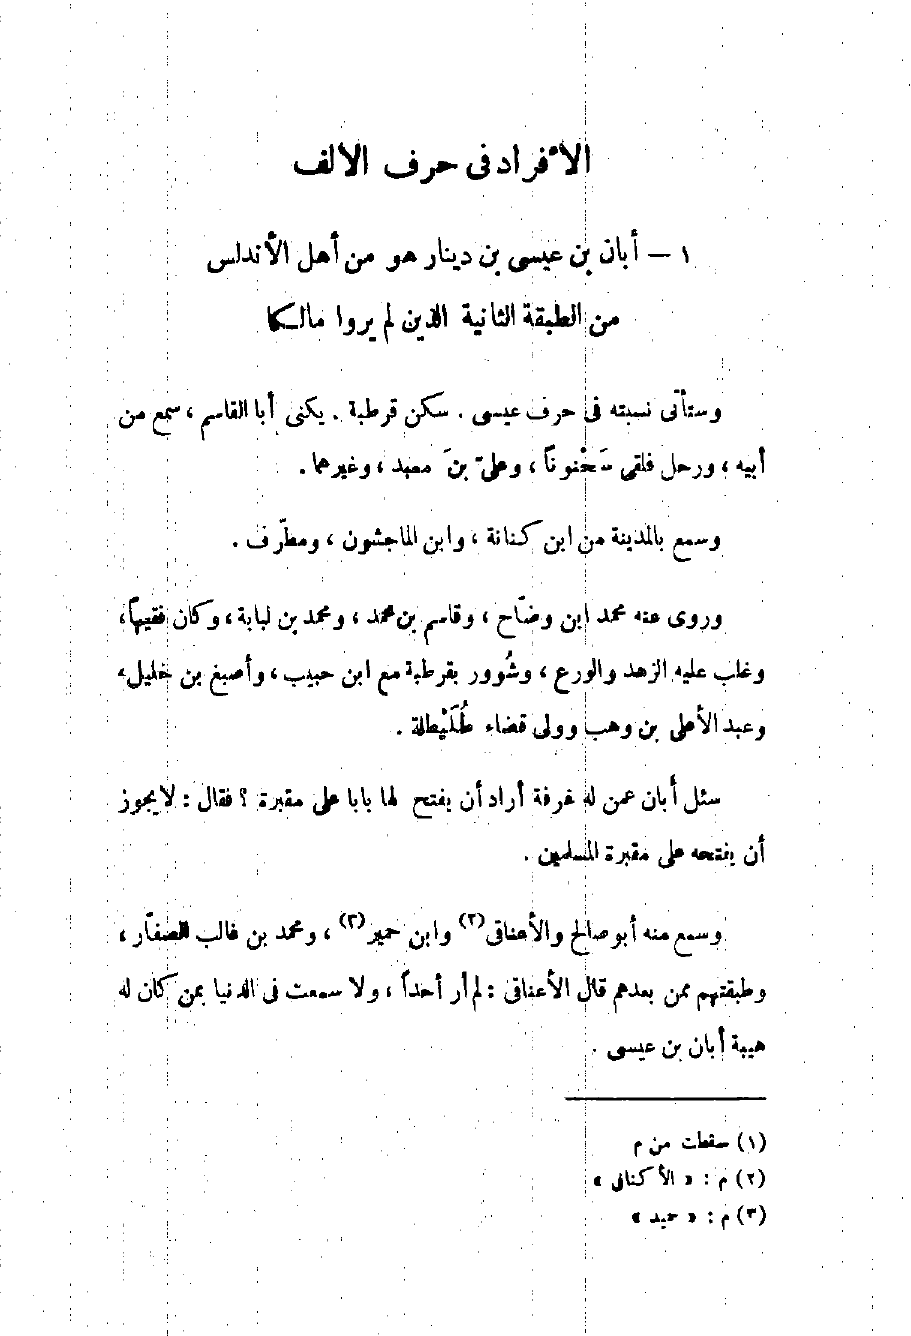 الأفراد فى حرف الألف
١ — أبان بن عيسى بن دينار هو من أهل الأندلس
من الطبقة الثانية الذين لم يروا مالكا
وستأتى نسبته فى حرف عيسى . سكن قرطبة . يكنى أبا القاسم ، سمع من
أبيه ، ورحل فلقى سَحْنوناً ، وعلىّ بنَ معبد ، وغيرهما .
وسمع بالمدينة من ابن كنانة ، وابن الماجشون ، ومطرّف .
وروى عنه محمد ابن وضّاح ، وقاسم بن محمد ، ومحمد بن لبابة ، وكان فقيهاً،
وغلب عليه الزهد والورع ، وشُوور بقرطبة مع ابن حبيب ، وأصبغ بن خليل ،
وعبد الأعلى بن وهب وولى قضاء طُلَيْطالة .
سئل أبان عمن له غرفة أراد أن يفتح لها بابا على مقبرة ؟ فقال : لا يجوز
أن يفتحه على مقبرة المسلمين .
وسمع منه أبو صالح والأعناقى(٢) وابن حمير(٣) ، ومحمد بن غالب الصفّار ،
وطبقتهم ممن بعدهم قال الأعناقى : لم أر أحداً ، ولا سمعت فى الدنيا بمن كان له
هيبة أبان بن عيسى .
(١) سقطت من م
(٢) م : « الأكنانى »
(٣) م : « حميد »